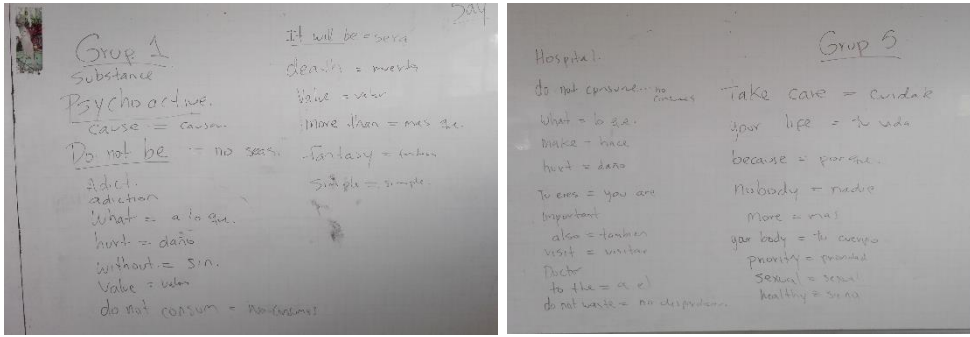 Grup 1
Substance
Psychoactive.
cause = causar.
Do not be = no seas.
Adict.
adiction
What = a lo que.
hurt = daño
without = sin.
Value = valor
do not consum = no consumas
It will be = será
death = muerte
Value = valor
more then = mas que.
fantasy =
simple = simple
Hospital.
do not consume no consumas
What = lo que.
make = hace
hurt = daño
Tu eres = you are
Important
also = tambien
visit = visitar
Doctor
to the = a el
do not waste = no
Grup 5
Take care = cuidate
your life = tu vida
because = porque.
nobody = nadie
more = mas
your body = tu cuerpo.
priority =
sexual = sexual
healthy = sano